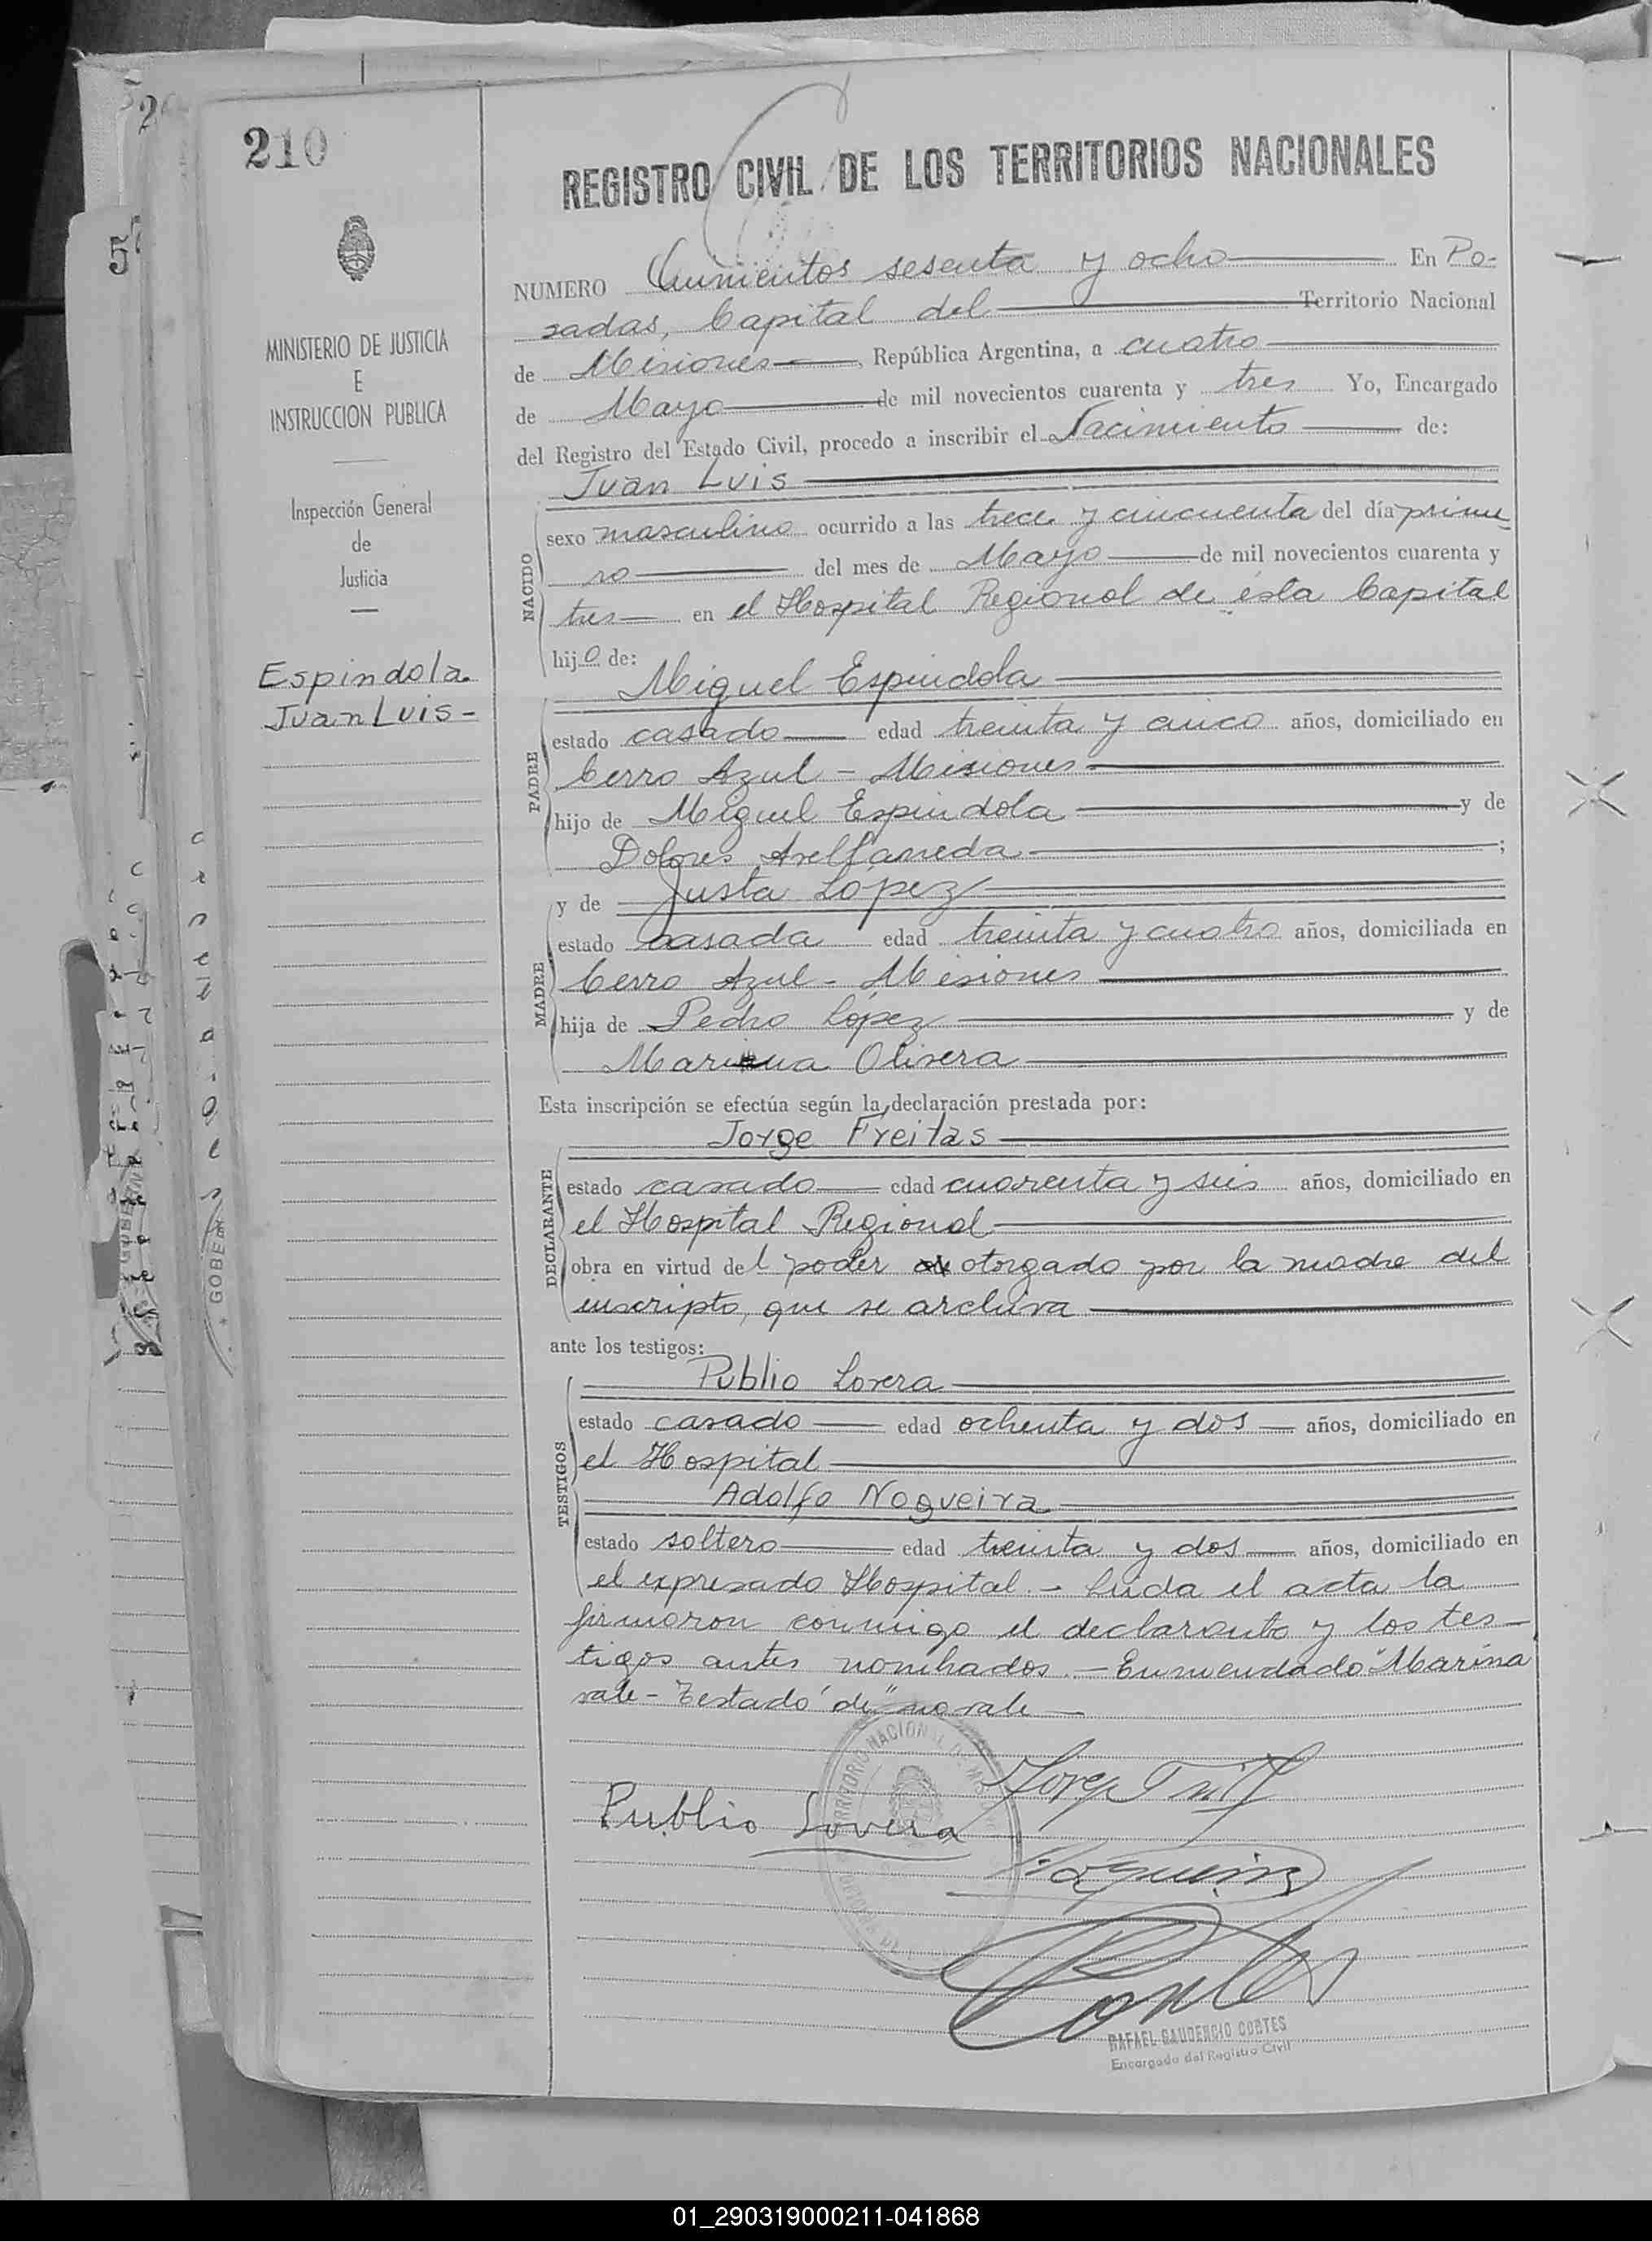 210
REGISTRO CIVIL DE LOS TERRITORIOS NACIONALES
MINISTERIO DE JUSTICIA
E
INSTRUCCION PUBLICA
Inspección General
de
Justicia
Espindola
Juan Luis-
NUMERO Quinientos sesenta y ocho En Po-
sadas, Capital del Territorio Nacional
de Misiones, República Argentina, a cuatro
de Mayo de mil novecientos cuarenta y tres Yo, Encargado
del Registro del Estado Civil, procedo a inscribir el Nacimiento de:
Juan Luis
NACIDO
sexo masculino ocurrido a las trece y cincuenta del día prime-
ro del mes de Mayo de mil novecientos cuarenta y
tres en el Hospital Regional de ésta Capital
hijo de:
Miguel Espindola
PADRE
estado casado edad treinta y cinco años, domiciliado en
Cerro Azul - Misiones
hijo de Miguel Espindola y de
Dolores Avellaneda;
y de Justa López
MADRE
estado casada edad treinta y cuatro años, domiciliada en
Cerro Azul - Misiones
hija de Pedro López y de
Marina Olivera
Esta inscripción se efectúa según la declaración prestada por:
Jorge Freitas
DECLARANTE
estado casado edad cuarenta y seis años, domiciliado en
el Hospital Regional
obra en virtud del poder otorgado por la madre del
inscripto, que se archiva
ante los testigos:
Publio Lovera
TESTIGOS
estado casado edad ochenta y dos años, domiciliado en
el Hospital
Adolfo Nogueira
estado soltero edad treinta y dos años, domiciliado en
el expresado Hospital.- Leida el acta la
firmaron conmigo el declarante y los tes-
tigos antes nombrados.- Enmendado "Marina
vale - Testado "de" no vale
Publio Lovera
RAFAEL GAUDENCIO CORTES
Encargado del Registro Civil
01_290319000211-041868